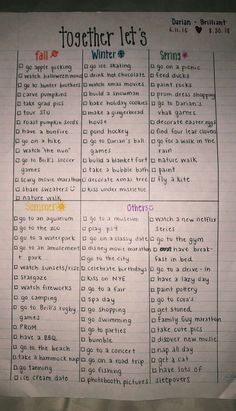 Darian + Brilliant
together let's
6.11.15 ♥ 8.30.15
fall
□ go apple picking
□ watch halloween movies
□ go to hunter brothers
□ carve pumpkins
□ take grad pics
□ tour SFU
□ roast pumpkin seeds
□ have a bonfire
□ go on a hike
□ watch "the nun"
□ go to Bril's soccer
games
□ scary movie marathon
□ share sweaters ☺
□ nature walk
Winter
□ go ice skating
□ drink hot chocolate
□ watch xmas movies
□ build a snowman
□ bake holiday cookies
□ make a gingerbread
house
□ pond hockey
□ go to Darian's ball
games
□ build a blanket fort
□ take a bubble bath
□ decorate xmas tree
□ kiss under misletoe
Spring
□ go on a picnic
□ feed ducks
□ paint rocks
□ prom dress shopping
□ go to Darian's
vball games
□ decorate easter eggs
□ find four leaf clovers
□ go for a walk in the
rain
□ nature walk
□ paint
□ fly a kite
Summer
□ go to an aquarium
□ go to the zoo
□ go to a waterpark
□ go to an amusement
park
□ watch sunsets/rises
□ stargaze
□ watch fireworks
□ go camping
□ go to Bril's rugby
games
□ PROM
□ have a BBQ
□ go to the beach
□ take a hammock nap
□ go tanning
□ ice cream date
Others
□ go to a museum
□ play
□ go on a classy date
□ disney movie marathon
□ go to the city
□ celebrate birthdays
□ kiss on NYE
□ go to a fair
□ spa day
□ go shopping
□ go swimming
□ go to parties
□ bumble
□ go to a concert
□ go on a road trip
□ go fishing
□ photobooth pictures
□ watch a new netflix
series
□ go to the gym
□ have break-
fast in bed
□ go to a drive-in
□ have a lazy day
□ paint pottery
□ go to cora's
□ get stoned
□ family guy marathon
□ take cute pics
□ disover new music
□ nap all day
□ get a cat
□ have lots of
sleepovers